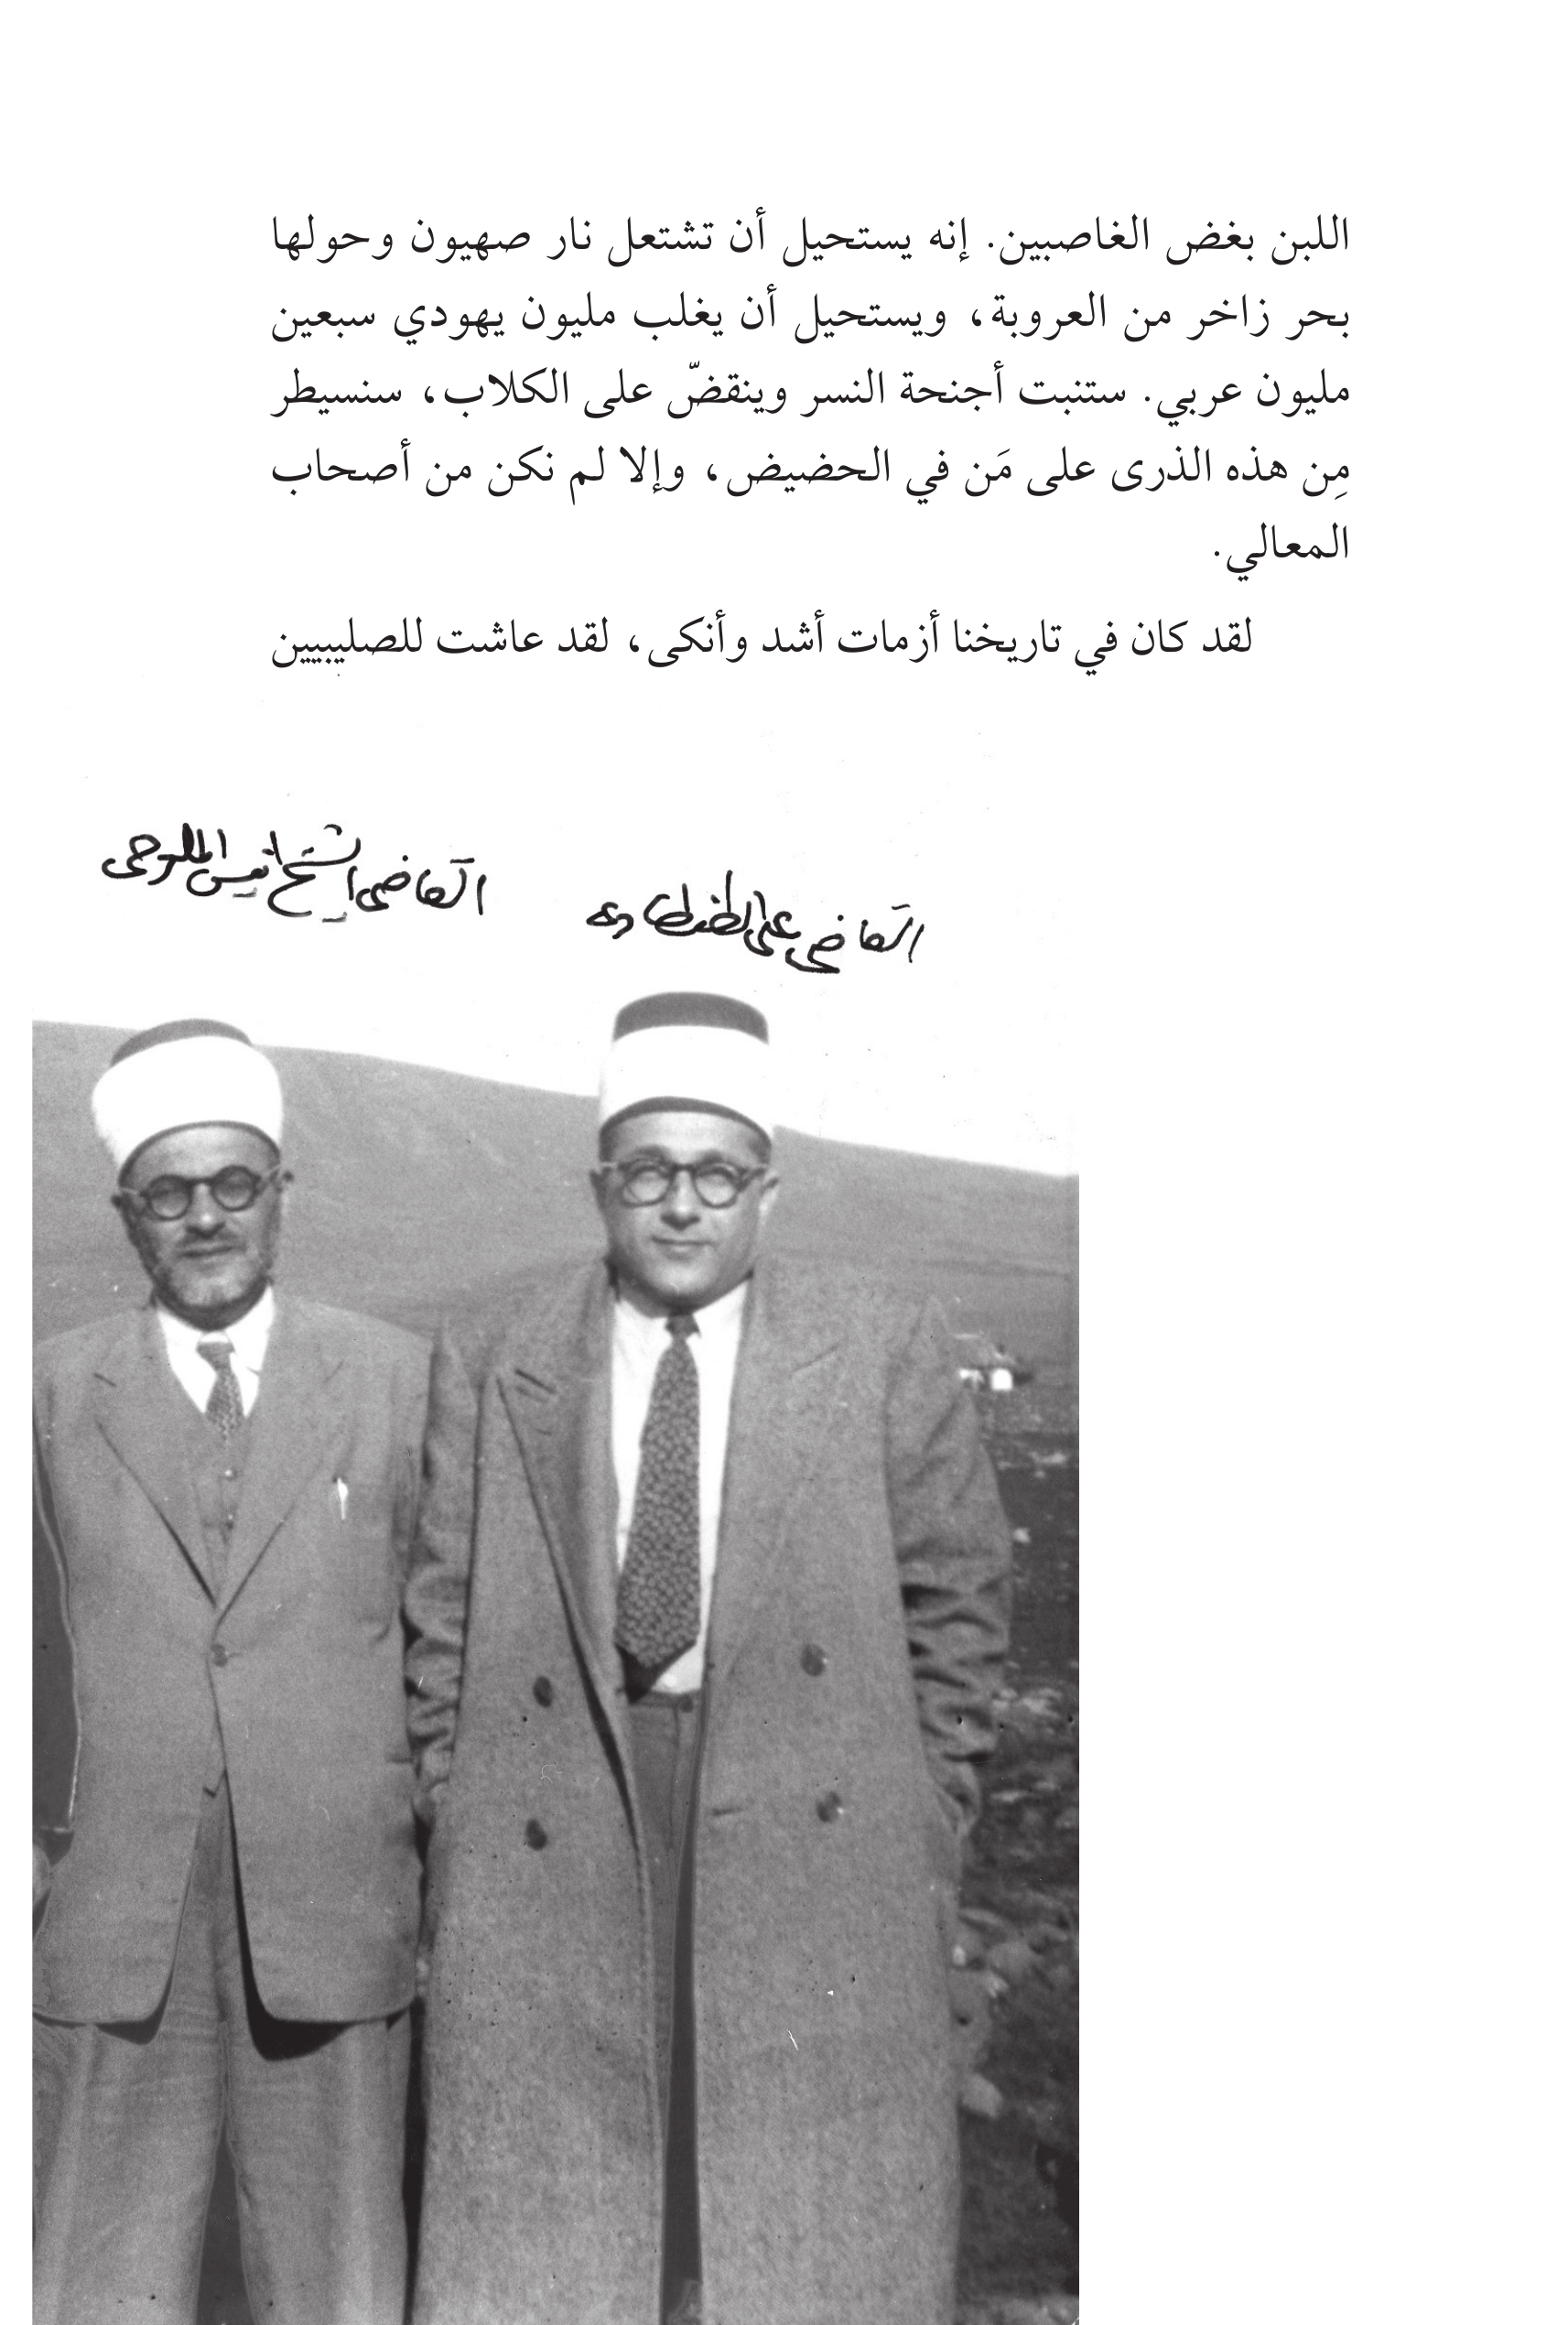 اللبن بغض الغاصبين. إنه يستحيل أن تشتعل نار صهيون وحولها
بحر زاخر من العروبة، ويستحيل أن يغلب مليون يهودي سبعين
مليون عربي. ستنبت أجنحة النسر وينقضّ على الكلاب، سنسيطر
مِن هذه الذرى على مَن في الحضيض، وإلا لم نكن من أصحاب
المعالي.
لقد كان في تاريخنا أزمات أشد وأنكى، لقد عاشت للصليبيين
القاضي علي الطنطاوي
القاضي الشيخ انيس الملوحي